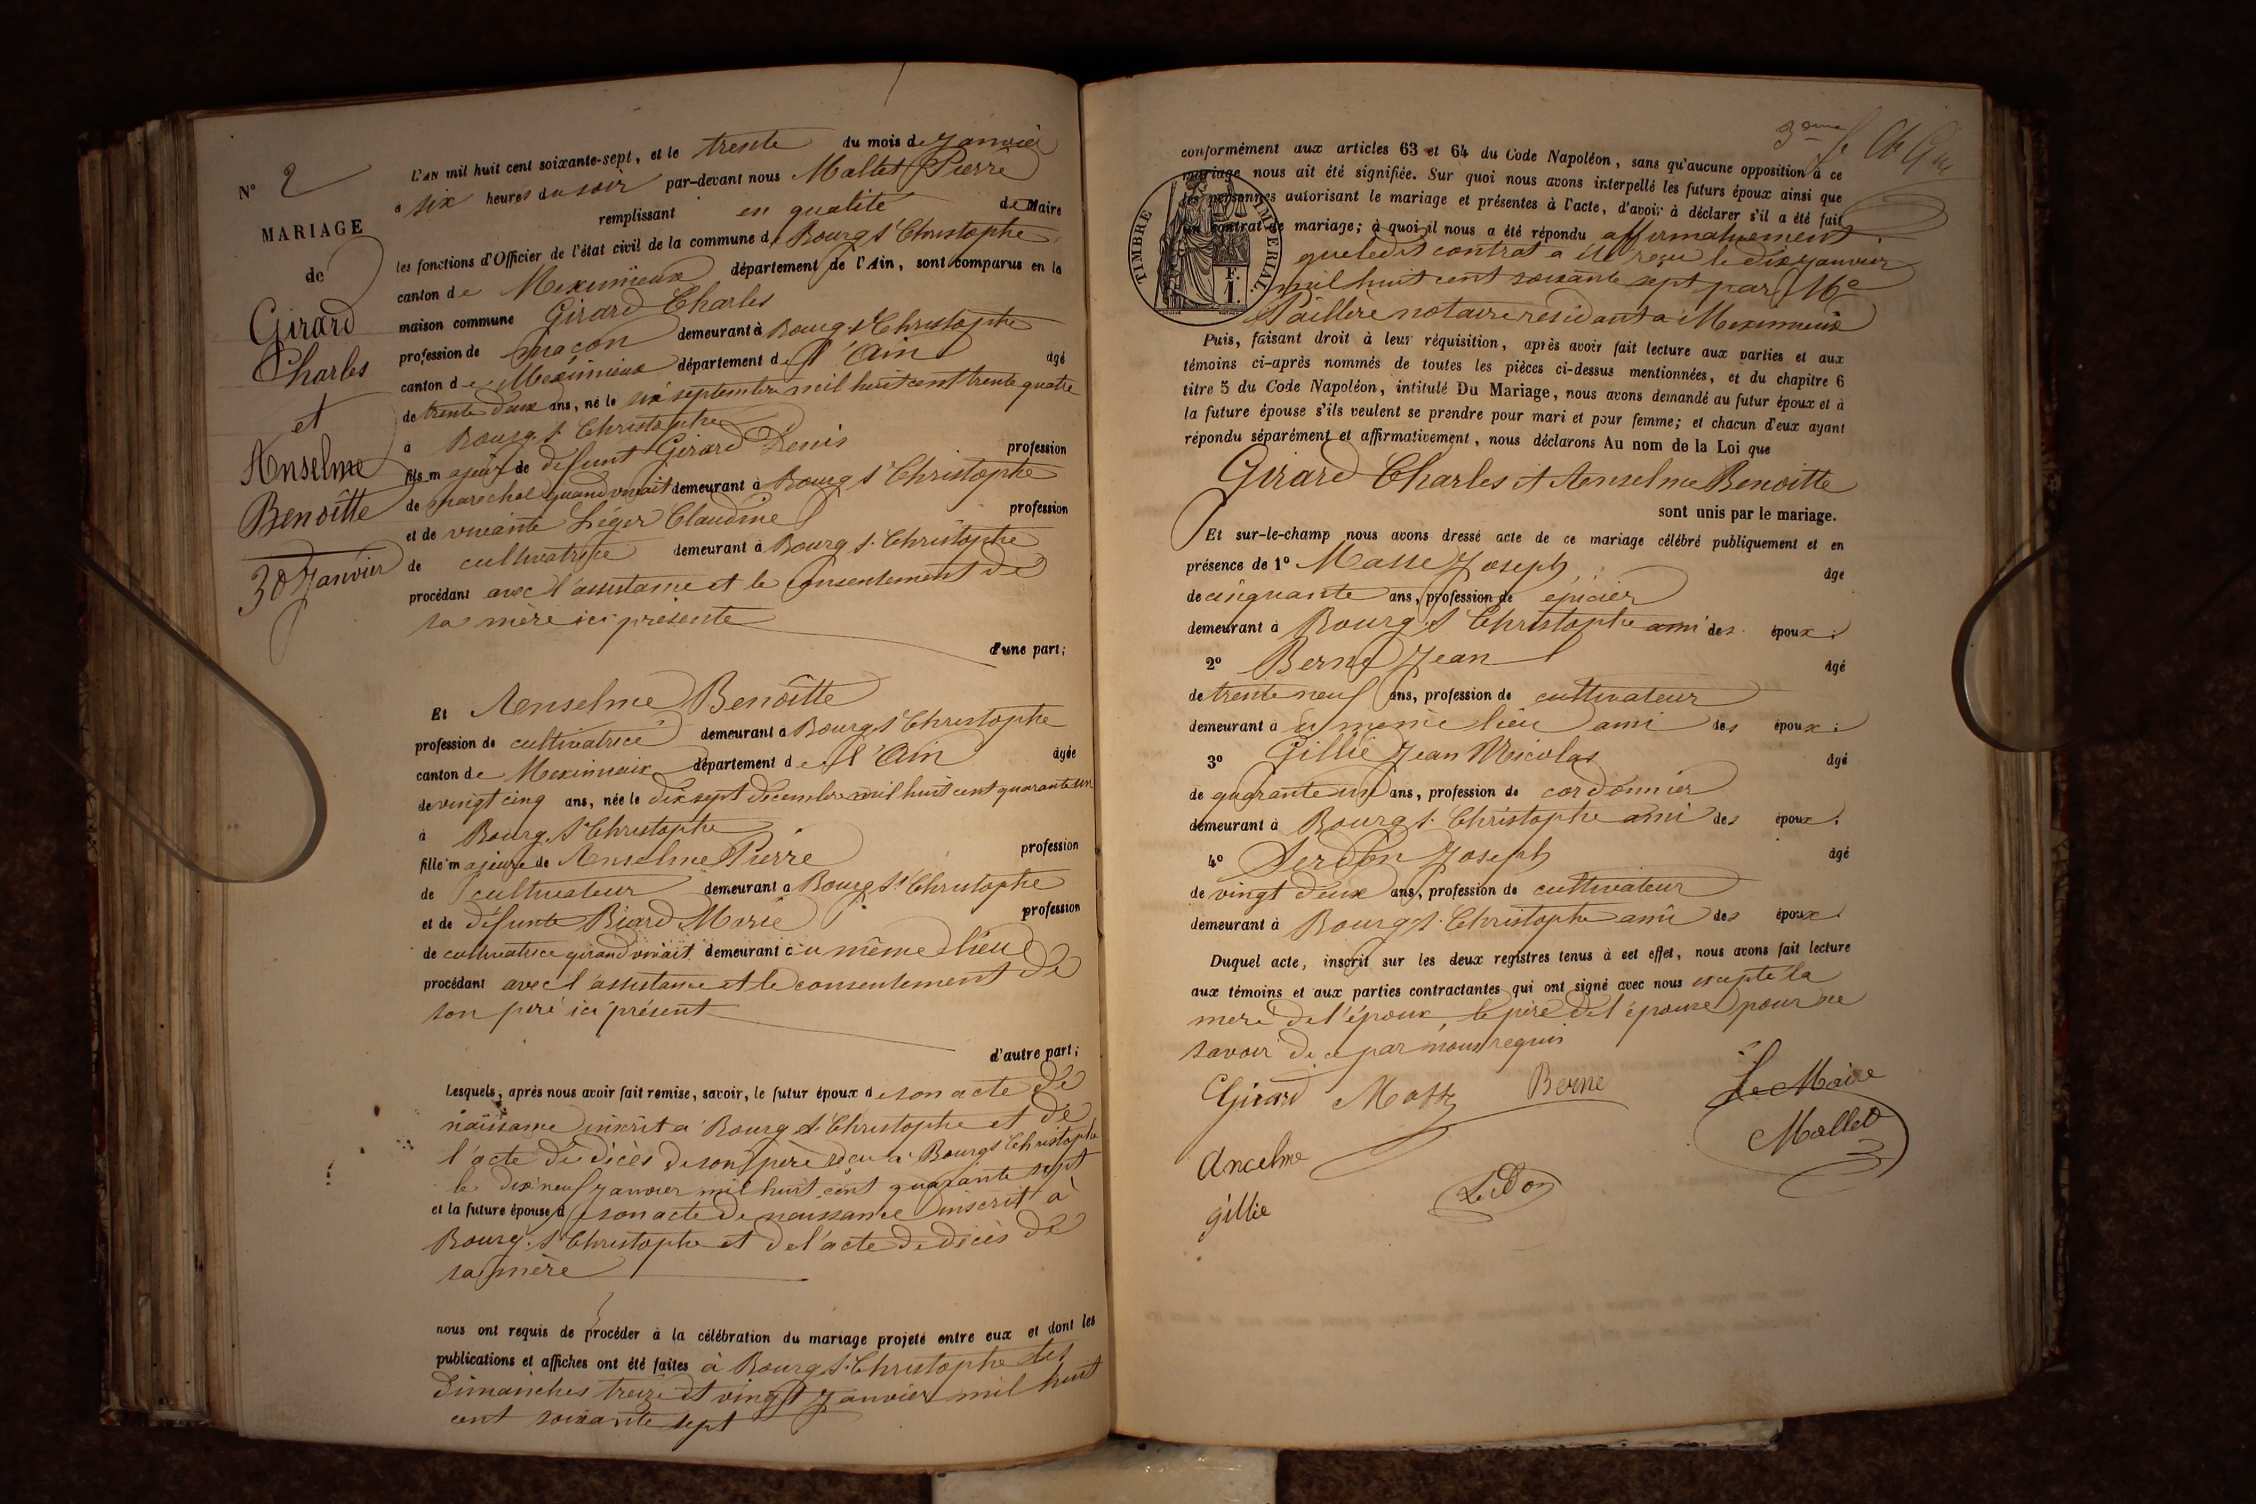 N° 2
MARIAGE
de
Girard
Charles
et
Anselme
Benoîtte
30 Janvier
L'AN mil huit cent soixante-sept, et le trente du mois de Janvier
à six heures du soir par-devant nous Mallet Pierre
remplissant en qualité de Maire
les fonctions d'Officier de l'état civil de la commune d Bourg St Christophe
canton de Meximieux département de l'Ain, sont comparus en la
maison commune Girard Charles
profession de maçon demeurant à Bourg St Christophe
canton de Meximieux département de l'Ain âgé
de trente deux ans, né le six septembre mil huit cent trente quatre
à Bourg St Christophe
fils majeur de défunt Girard Denis profession
de marechal quand vivait demeurant à Bourg St Christophe
et de vivante Léger Claudine profession
de cultivatrice demeurant à Bourg St Christophe
procédant avec l'assistance et le consentement de
sa mère ici présente
d'une part;
Et Anselme Benoîtte
profession de cultivatrice demeurant à Bourg St Christophe
canton de Meximieux département de l'Ain âgée
de vingt cinq ans, née le dix sept décembre mil huit cent quarante un
à Bourg St Christophe
fille majeure de Anselme Pierre profession
de cultivateur demeurant à Bourg St Christophe
et de défunte Biard Marie profession
de cultivatrice quand vivait demeurant au même lieu
procédant avec l'assistance et le consentement de
son père ici présent
d'autre part;
Lesquels, après nous avoir fait remise, savoir, le futur époux de son acte de
naissance inscrit à Bourg St Christophe et de
l'acte de décès de son père à Bourg St Christophe
le dix neuf janvier mil huit cent quarante sept
et la future épouse de son acte de naissance inscrit à
Bourg St Christophe et de l'acte de décès de
sa mère
nous ont requis de procéder à la célébration du mariage projeté entre eux et dont les
publications et affiches ont été faites à Bourg St Christophe les
dimanches treize et vingt Janvier mil huit
cent soixante sept
3eme
conformément aux articles 63 et 64 du Code Napoléon, sans qu'aucune opposition à ce
mariage nous ait été signifiée. Sur quoi nous avons interpellé les futurs époux ainsi que
les personnes autorisant le mariage et présentes à l'acte, d'avoir à déclarer s'il a été fait
un contrat de mariage; à quoi il nous a été répondu affirmativement
que ledit contrat a été reçu le dix janvier
mil huit cent soixante sept par Me
Paillère notaire résidant à Meximieux
TIMBRE IMPERIAL
Puis, faisant droit à leur réquisition, après avoir fait lecture aux parties et aux
témoins ci-après nommés de toutes les pièces ci-dessus mentionnées, et du chapitre 6
titre 5 du Code Napoléon, intitulé Du Mariage, nous avons demandé au futur époux et à
la future épouse s'ils veulent se prendre pour mari et pour femme; et chacun d'eux ayant
répondu séparément et affirmativement, nous déclarons Au nom de la Loi que
Girard Charles et Anselme Benoitte
sont unis par le mariage.
Et sur-le-champ nous avons dressé acte de ce mariage célébré publiquement et en
présence de 1° Masse Joseph âgé
de cinquante ans, profession de épicier
demeurant à Bourg St Christophe ami des époux;
2° Berne Jean âgé
de trente neuf ans, profession de cultivateur
demeurant à u meme lieu ami des époux;
3° Gillié Jean Nicolas âgé
de quarante un ans, profession de cordonnier
demeurant à Bourg St Christophe ami des époux;
4° Joseph âgé
de vingt deux ans, profession de cultivateur
demeurant à Bourg St Christophe ami des époux.
Duquel acte, inscrit sur les deux registres tenus à cet effet, nous avons fait lecture
aux témoins et aux parties contractantes qui ont signé avec nous excepté la
mere de l'époux, le père de l'épouse pour ne
savoir de ce par nous requis
Girard Masse Berne Le Maire
Mallet
Ancelme
gillie